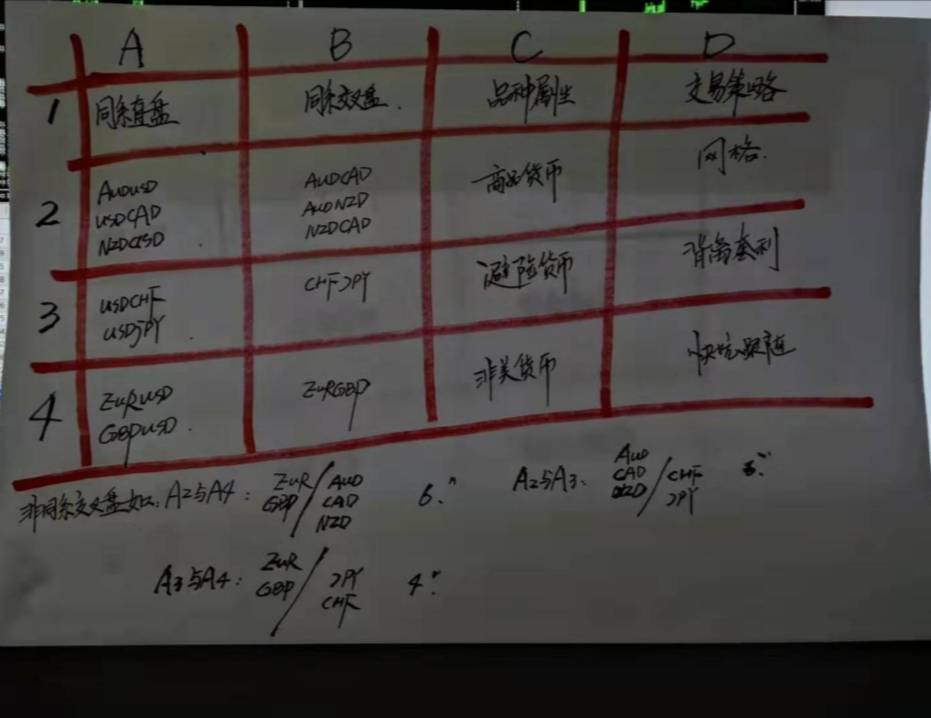 A B C D
1 同系直盘 同系交叉盘. 品种属性 交易策略
2
AUDUSD
USDCAD
NZDUSD
AUDCAD
AUDNZD
NZDCAD
商品货币
网格.
3
USDCHF
USDJPY
CHFJPY
避险货币
背离套利
4
EURUSD
GBPUSD.
EURGBP
非美货币
跟随
非同系交叉盘如: A2与A4:
EUR
GBP
/
AUD
CAD
NZD
6个
A2与A3:
AUD
CAD
NZD
/
CHF
JPY
A3与A4:
EUR
GBP
/
JPY
CHF
4个